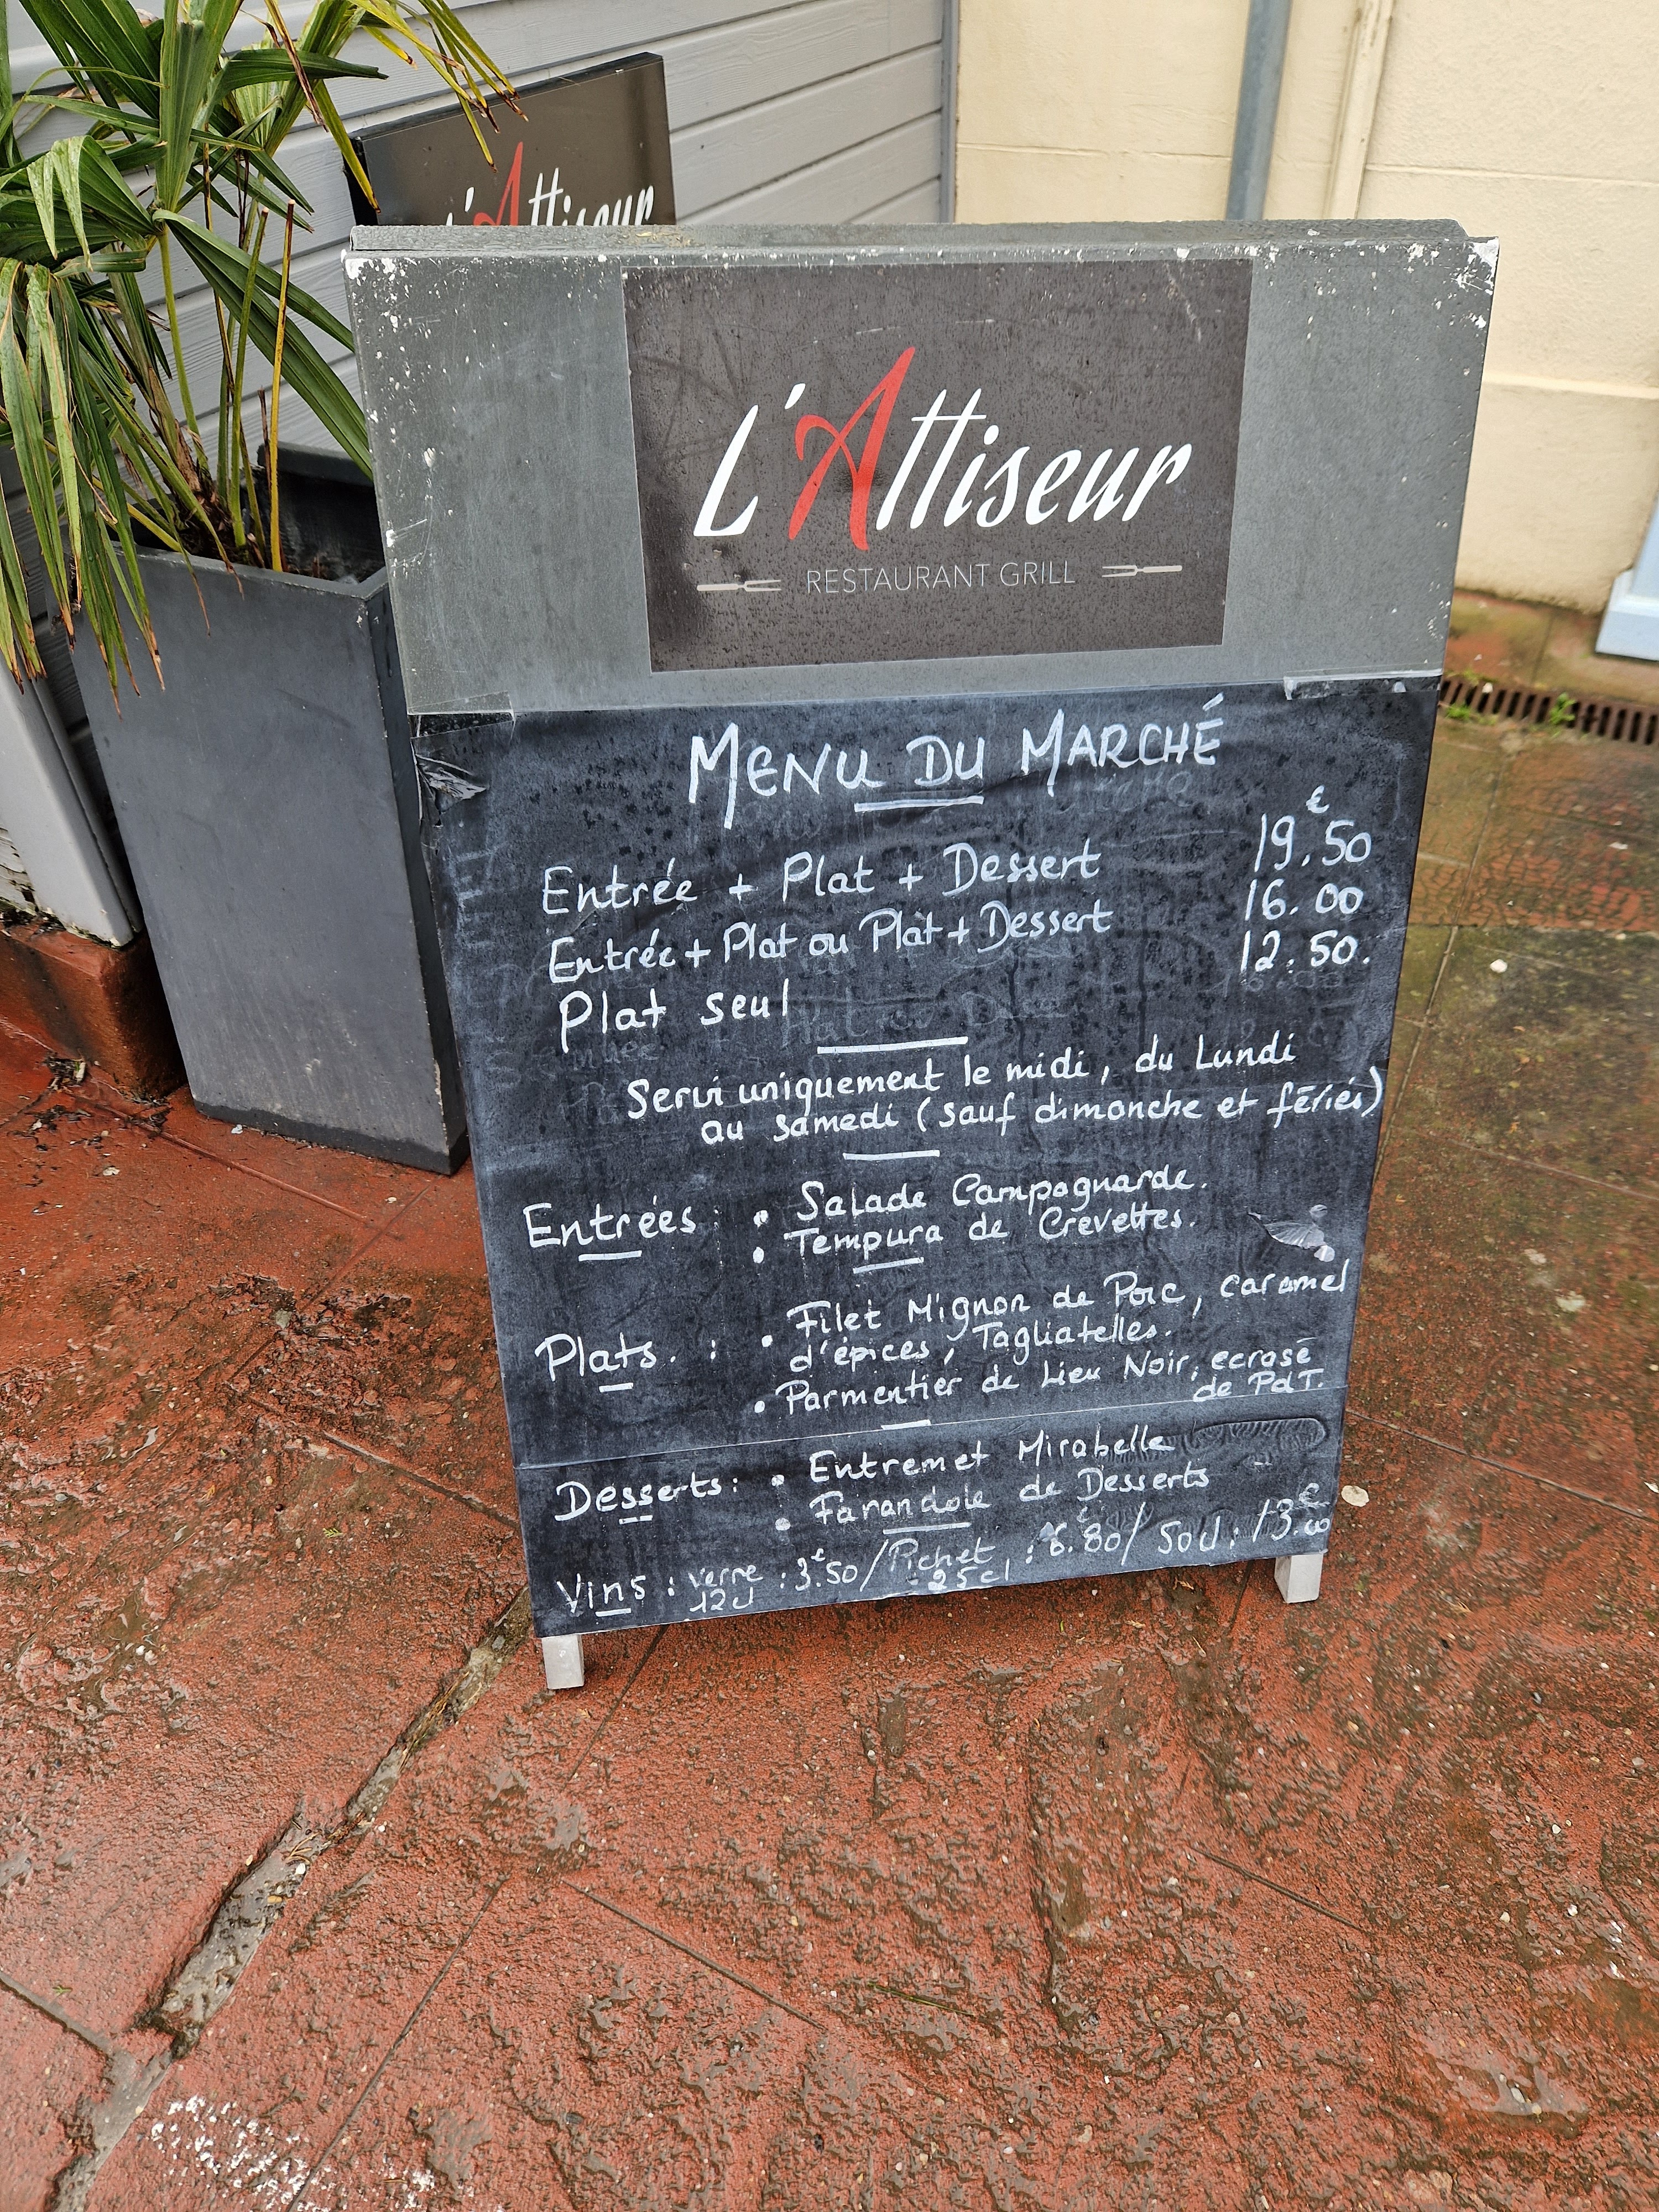 L'Attiseur
L'Attiseur
RESTAURANT GRILL
MENU DU MARCHÉ
Entrée + Plat + Dessert 19.€50
Entrée + Plat ou Plat + Dessert 16.00
Plat seul 12.50.
Servi uniquement le midi, du Lundi
au samedi (sauf dimanche et fériés)
Entrées : • Salade Campagnarde.
• Tempura de Crevettes.
Plats. : • Filet Mignon de Porc, caramel
d'épices, Tagliatelles.
• Parmentier de Lieu Noir, ecrasé
de PdT.
Desserts : • Entremet Mirabelle
• Farandole de Desserts
Vins : verre 12cl : 3.€50 / Pichet 25cl : 6.€80 / 50cl : 13.€00